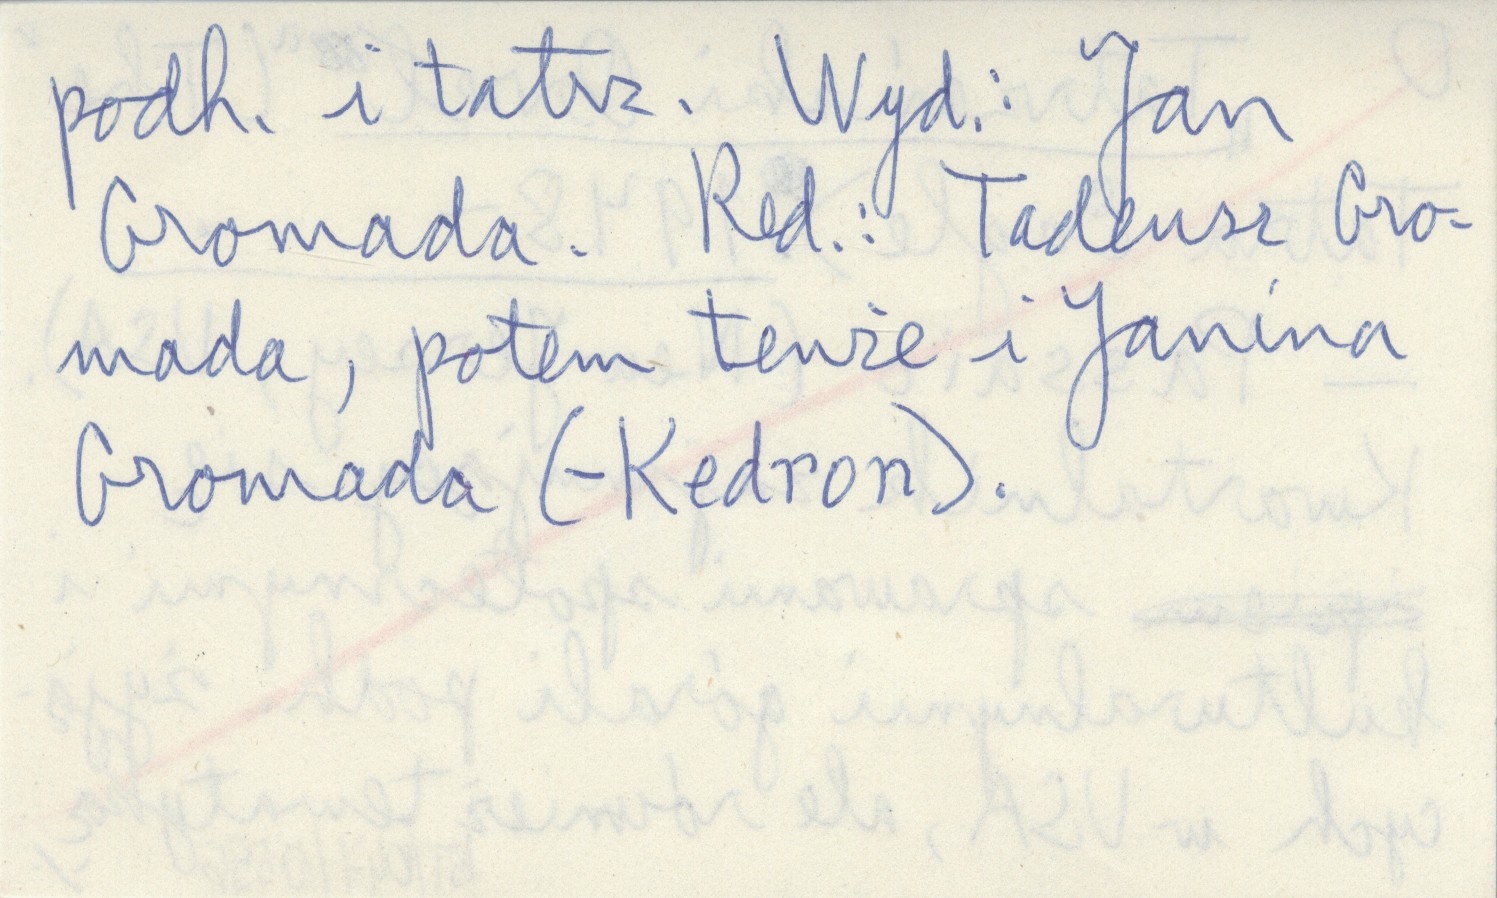 podh. i tatrz. Wyd.: Jan
Gromada. Red.: Tadeusz Gro-
mada, potem tenże i Janina
Gromada (-Kedron).